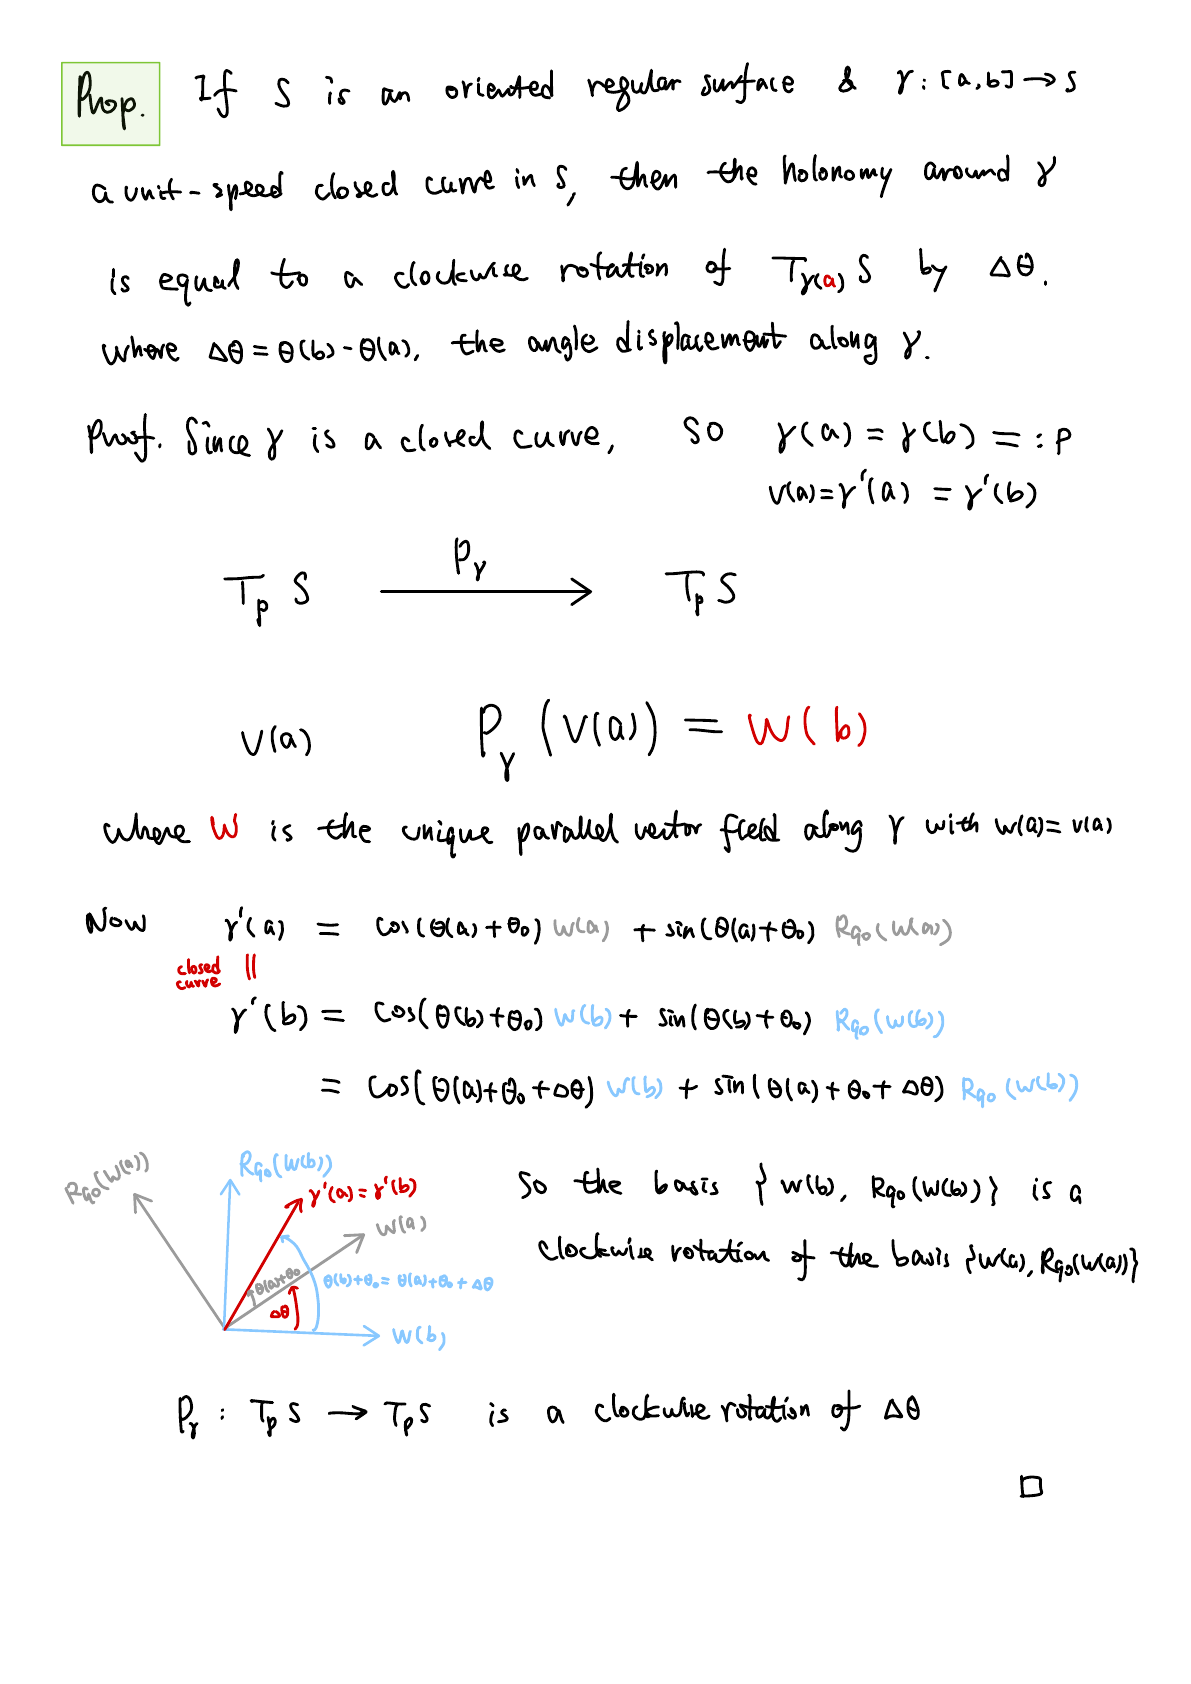 Prop. If S is an oriented regular surface & γ : [a,b] → S
a unit-speed closed curve in S, then the holonomy around γ
is equal to a clockwise rotation of T_γ(a) S by Δθ.
where Δθ = θ(b) - θ(a), the angle displacement along γ.
Proof. Since γ is a closed curve, so γ(a) = γ(b) =: p
V(a) = γ'(a) = γ'(b)
T_p S —P_γ→ T_p S
V(a) P_γ (V(a)) = W(b)
where W is the unique parallel vector field along γ with W(a) = V(a)
Now γ'(a) = cos(θ(a)+θ₀) W(a) + sin(θ(a)+θ₀) R₉₀(W(a))
closed
curve ||
γ'(b) = cos(θ(b)+θ₀) W(b) + sin(θ(b)+θ₀) R₉₀(W(b))
= cos(θ(a)+θ₀+Δθ) W(b) + sin(θ(a)+θ₀+Δθ) R₉₀(W(b))
R₉₀(W(a))
R₉₀(W(b))
γ'(a) = γ'(b)
W(a)
θ(a)+θ₀
θ(b)+θ₀ = θ(a)+θ₀+Δθ
Δθ
W(b)
So the basis {W(b), R₉₀(W(b))} is a
clockwise rotation of the basis {W(a), R₉₀(W(a))}
P_γ : T_p S → T_p S is a clockwise rotation of Δθ
□